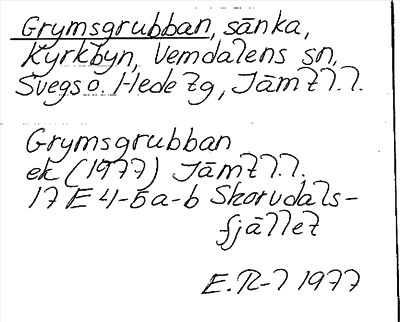 Grymsgrubban, sänka,
Kyrkbyn, Vemdalens sn,
Svegs o. Hede tg, Jämtl.l.
Grymsgrubban
ek (1977) Jämtl.l.
17 E 4-5a-b Skorvdals-
fjället
E.R-l 1977